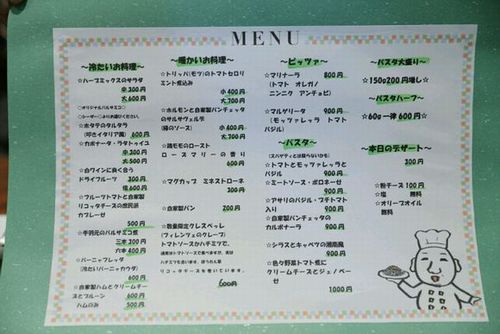 MENU
~冷たいお料理~
☆ハーブミックスのサラダ
中 300円
大 600円
○オリジナルバルサミコ○
☆ホタテのタルタラ
(叩きイタリア風) 600円
☆カポナータ・ラタトゥイユ
中 300円
大 500円
☆白ワインに良く合う
ドライフルーツ 300円
倍 600円
☆フルーツトマトと自家製
リコッタチーズの庶民派
カプレーゼ
500円
☆手羽元のバルサミコ煮
三本 300円
六本 400円
☆バーニャフレッダ
(冷たいバーニャカウダ)
600円
☆自家製ハムとクリームチー
ズとプルーン 600円
ハムのみ 500円
~暖かいお料理~
☆トリッパ(モツ)のトマトセロリ
エント煮込み
小 400円
大 700円
☆ホルモンと自家製パンチェッタ
のサルサヴェルデ
(緑のソース) 小 400円
大 700円
☆鶏モモのロースト
ローズマリーの香り
600円
☆マグカップ ミネストローネ
300円
☆自家製パン 200円
☆数量限定クレスペッレ
(フィレンツェのクレープ)
トマトソースかハチミツで、
リコッタチーズを巻いています。
600円
~ピッツァ~
☆マリナーラ 800円
(トマト オレガノ
ニンニク アンチョビ)
☆マルゲリータ 900円
(モッツァレッラ トマト
バジル)
~パスタ~
(スパゲティとは限らないかも)
☆トマトとモッツァレッラと
バジル 900円
☆ミートソース・ボロネーゼ
900円
☆アサリのバジル・プチトマト
入り 900円
☆自家製パンチェッタの
カルボナーラ 900円
☆シラスとキャベツの湘南風
900円
☆色々野菜トマト煮に
クリームチーズとジェノベー
ゼ
1000円
~パスタ大盛り~
☆150g 200円増し☆
~パスタハーフ~
☆60g 一律 600円☆
~本日のデザート~
300円
☆粉チーズ 100円
☆塩 無料
☆オリーブオイル
無料